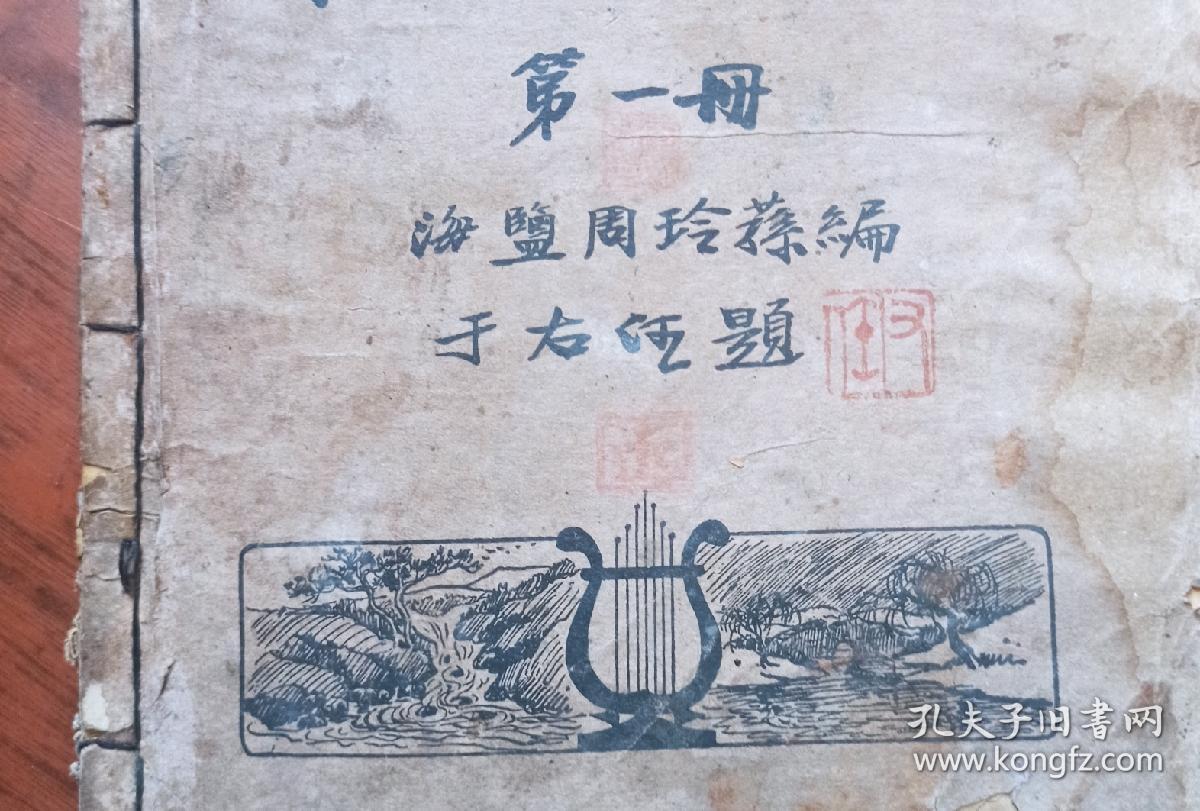 第一冊
海鹽周玲蓀編
于右任題
孔夫子旧書网
www.kongfz.com